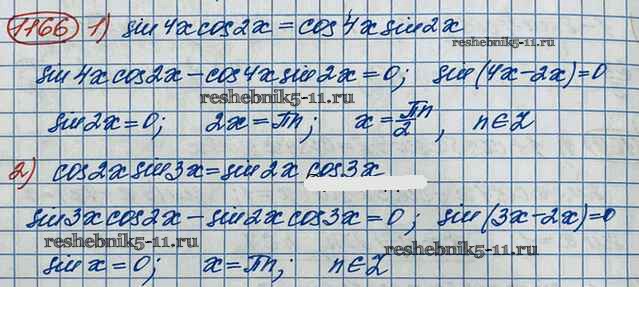 1166 1) sin4xcos2x=cos4xsin2x
sin4xcos2x-cos4xsin2x=0; sin(4x-2x)=0
reshebnik5-11.ru
sin2x=0; 2x=πn; x=πn/2, n∈Z
2) cos2xsin3x=sin2xcos3x
sin3xcos2x-sin2xcos3x=0; sin(3x-2x)=0
reshebnik5-11.ru reshebnik5-11.ru
sinx=0; x=πn; n∈Z